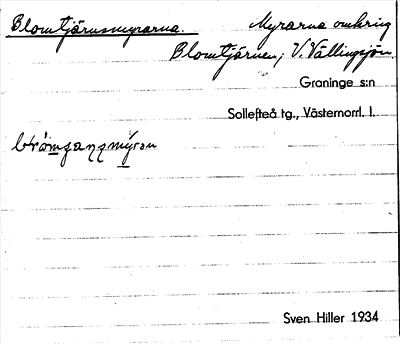 Blomtjärnsmyrarna. Myrarna omkring
Blomtjärnen, V. Vällingsjön.
Graninge s:n
Sollefteå tg., Västernorrl. l.
Sven Hiller 1934